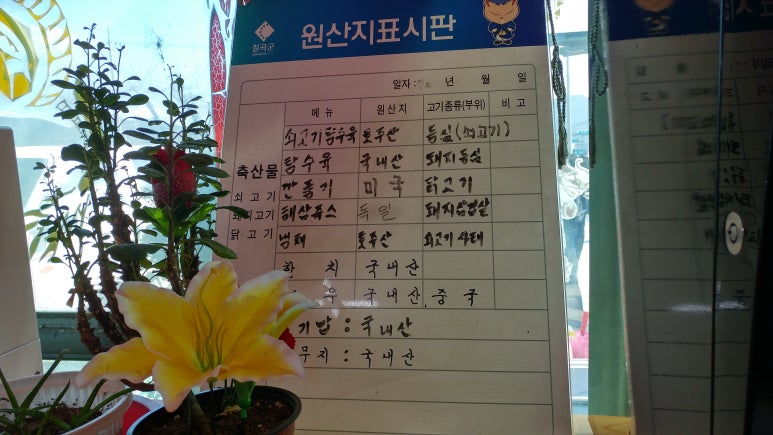 칠곡군
원산지표시판
일자: 년 월 일
메뉴 원산지 고기종류(부위) 비고
쇠고기탕수육 호주산 등심(쇠고기)
탕수육 국내산 돼지등심
축산물
깐풍기 미국 닭고기
쇠고기
독일
돼지고기
닭고기
냉채 호주산 쇠고기사태
한치 국내산
국내산, 중국
국내산
국내산